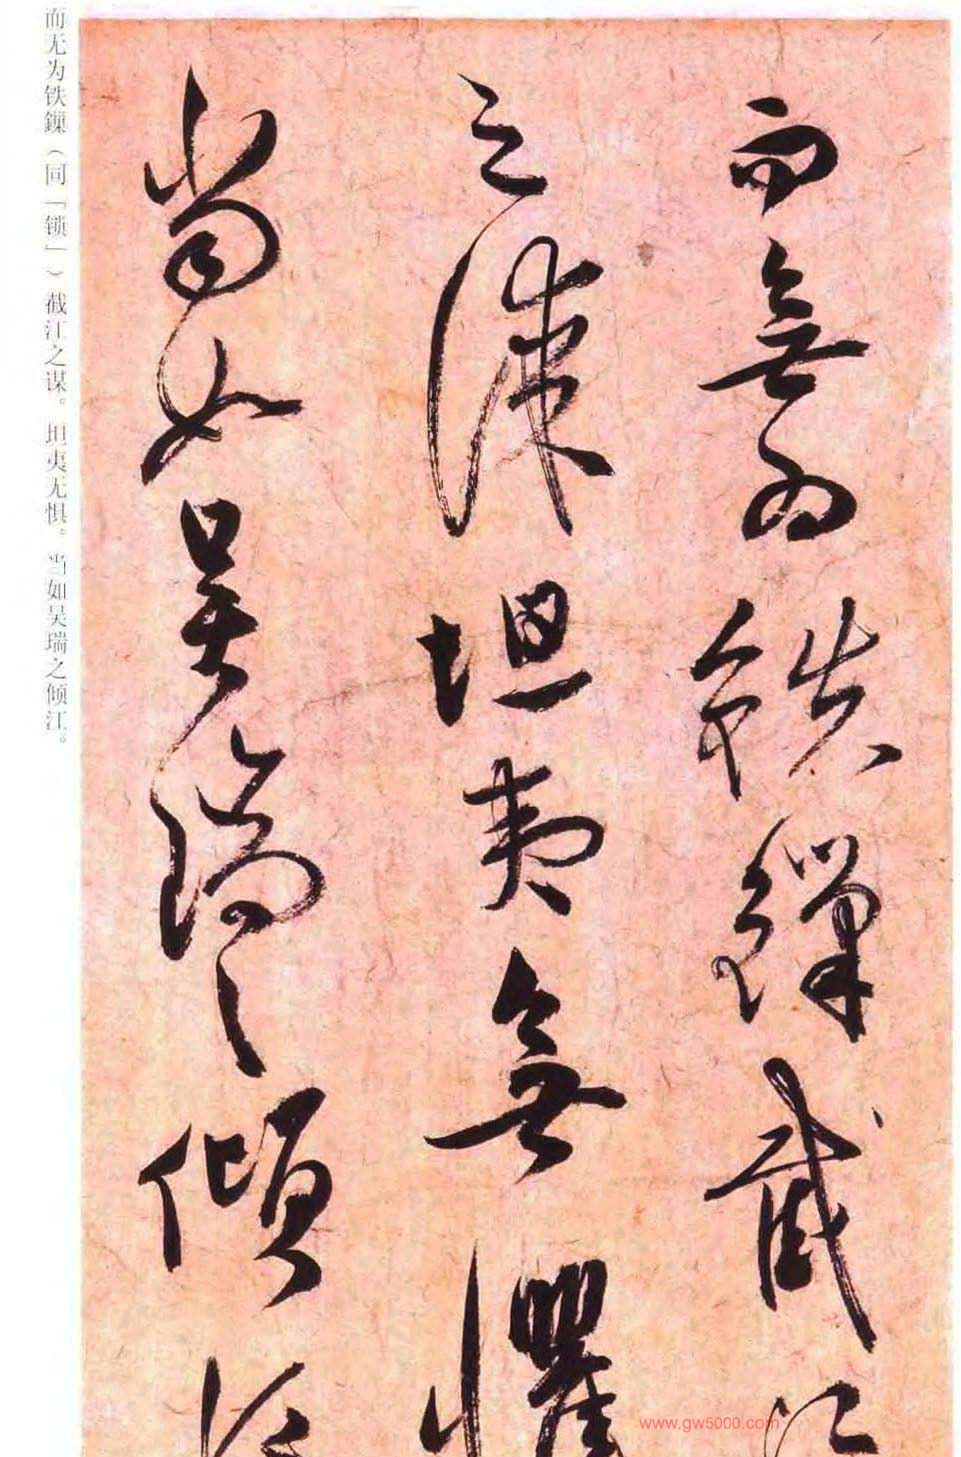 而無為鉄鏁截江
之謀坦夷無懼
當如吴瑞之傾江
而无为铁鏁（同「锁」）截江之谋。坦夷无惧。当如吴瑞之倾江。
www.gw5000.com